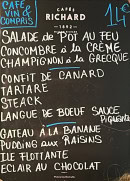 CAFE
VIN &
COMPRIS
CAFÉS
RICHARD
1892
14€
SALADE de POT AU FEU
CONCOMBRE à la CRÈME
CHAMPIGNON à la GRECQUE
CONFIT DE CANARD
TARTARE
STEACK
LANGUE DE BOEUF SAUCE
PIQUANTE
GATEAU À LA BANANE
PUDDING AUX RAISINS
ILE FLOTTANTE
ECLAIR AU CHOCOLAT